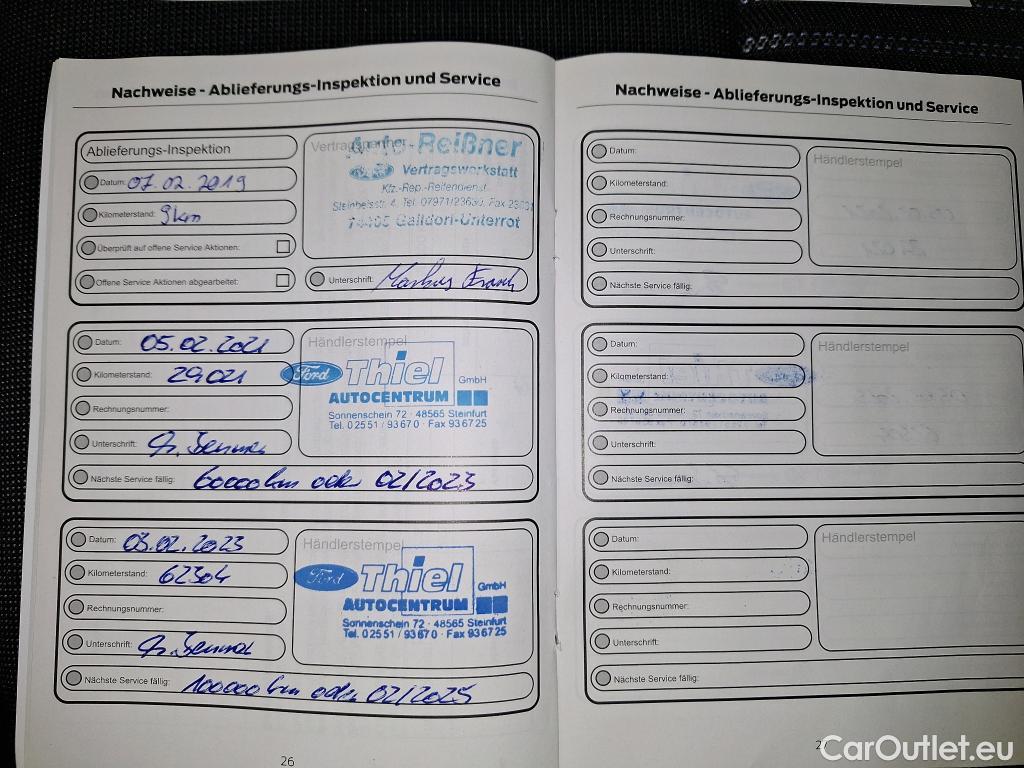 Nachweise - Ablieferungs-Inspektion und Service
Ablieferungs-Inspektion
Datum: 07.02.2019
Kilometerstand: 9km
Überprüft auf offene Service Aktionen:
Offene Service Aktionen abgearbeitet:
Vertragspartner
Auto-Reißner
Ford Vertragswerkstatt
Kfz.-Rep.-Reifendienst
Steinbeisstr. 4, Tel. 07971/23630, Fax
74405 Gaildorf-Unterrot
Unterschrift: Markus
Datum: 05.02.2021
Kilometerstand: 29021
Rechnungsnummer:
Unterschrift:
Händlerstempel
Ford Thiel GmbH
AUTOCENTRUM
Sonnenschein 72 · 48565 Steinfurt
Tel. 0 25 51 / 9 36 70 · Fax 93 67 25
Nächste Service fällig: 60000km oder 02/2023
Datum: 03.02.2023
Kilometerstand: 62304
Rechnungsnummer:
Unterschrift:
Händlerstempel
Ford Thiel GmbH
AUTOCENTRUM
Sonnenschein 72 · 48565 Steinfurt
Tel. 0 25 51 / 9 36 70 · Fax 93 67 25
Nächste Service fällig: 100000km oder 02/2025
26
Nachweise - Ablieferungs-Inspektion und Service
Datum:
Kilometerstand:
Rechnungsnummer:
Unterschrift:
Händlerstempel
Nächste Service fällig:
Datum:
Kilometerstand:
Rechnungsnummer:
Unterschrift:
Händlerstempel
Nächste Service fällig:
Datum:
Kilometerstand:
Rechnungsnummer:
Unterschrift:
Händlerstempel
Nächste Service fällig:
CarOutlet.eu